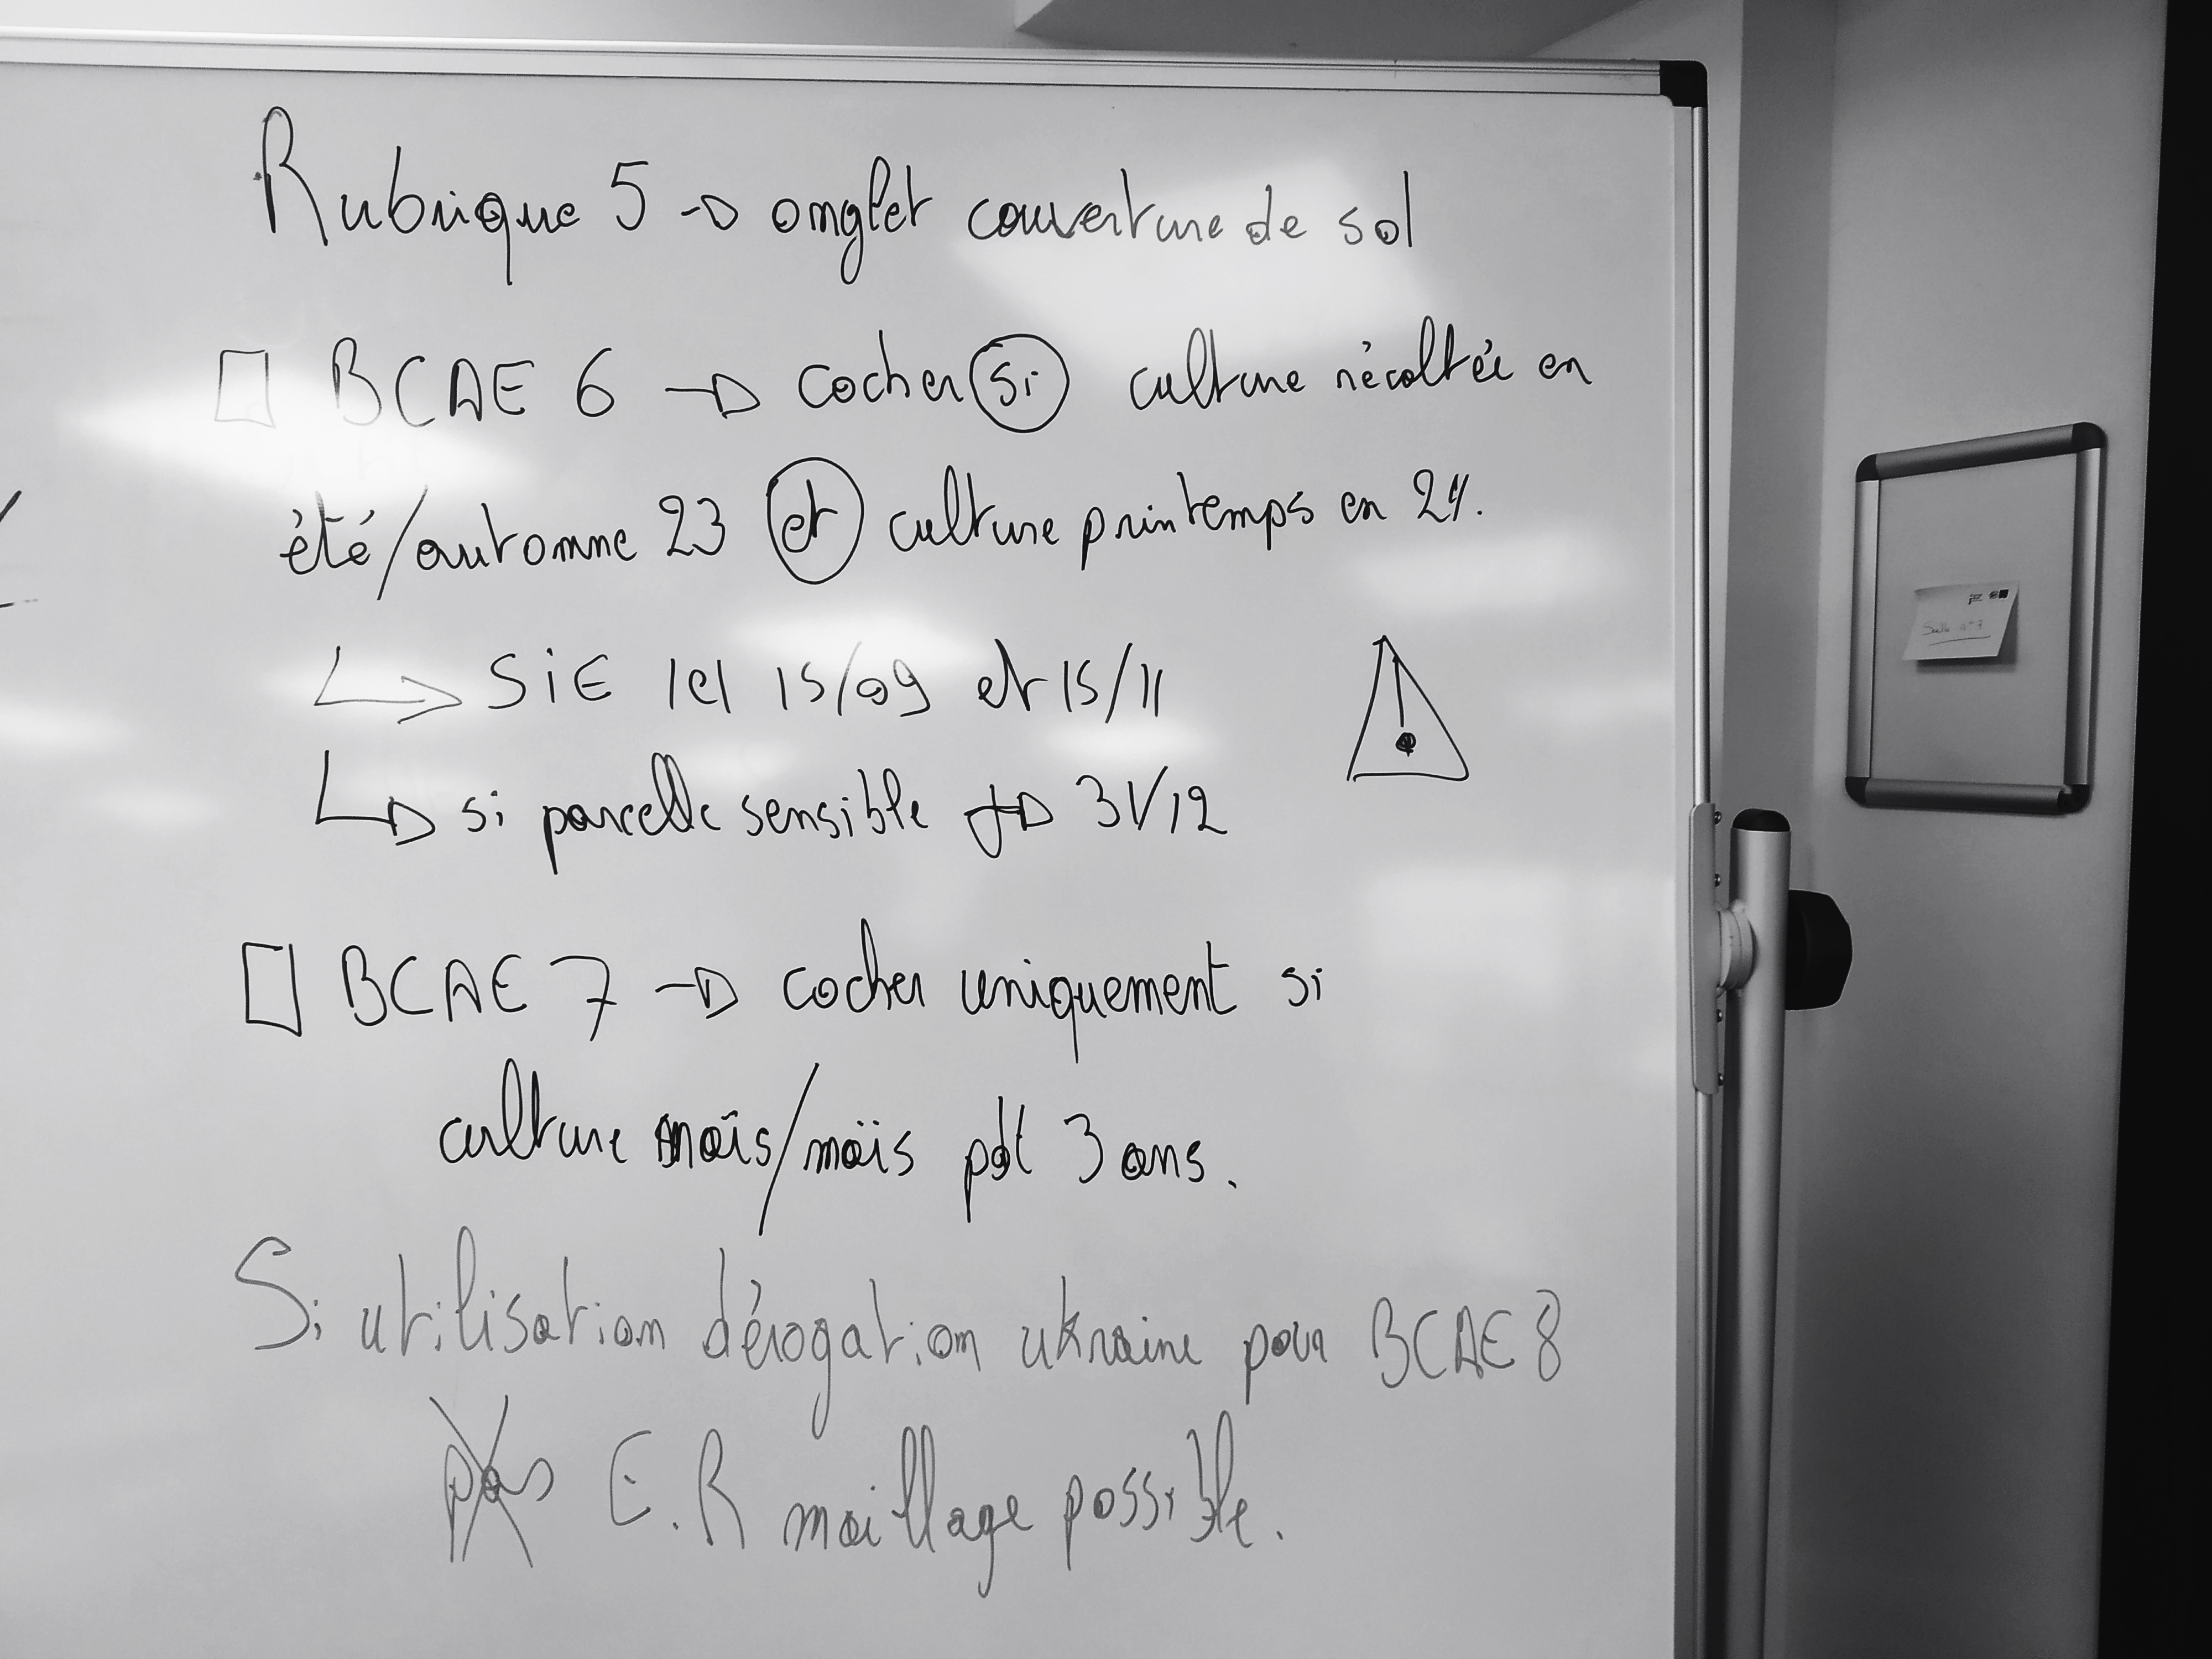 Rubrique 5 → onglet couverture de sol
□ BCAE 6 → cocher si culture récoltée en
été/automne 23 et culture printemps en 24.
↳ SiE 1el 15/09 et 15/11
↳ si parcelle sensible → 31/12
□ BCAE 7 → cocher uniquement si
culture maïs/maïs pdt 3 ans.
Si utilisation dérogation ukraine pour BCAE 8
pas E.R maillage possible.
Salle n°7